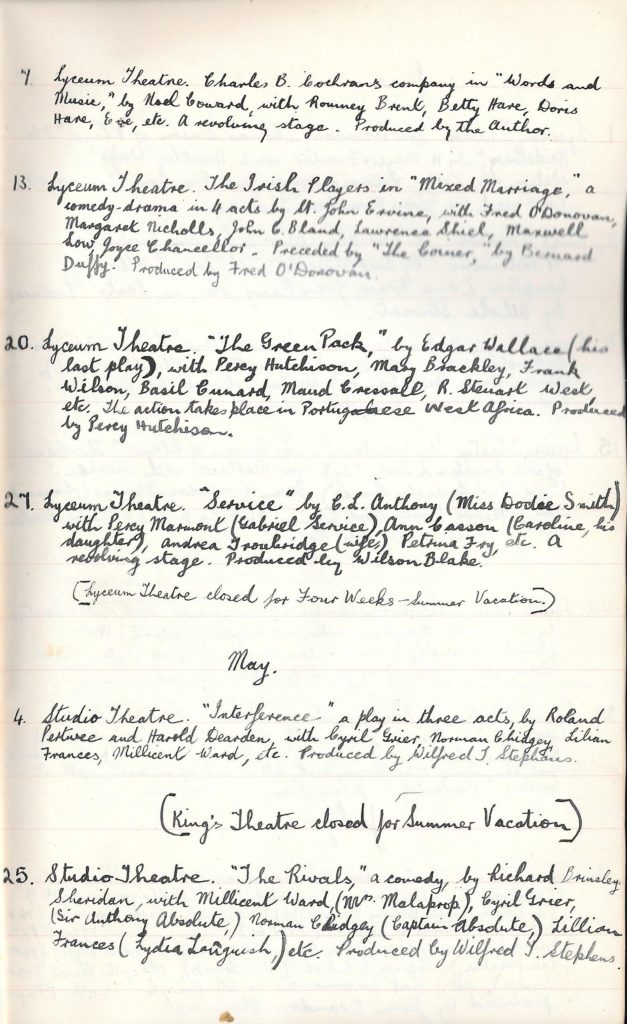 7. Lyceum Theatre. Charles B. Cochran's company in "Words and
Music," by Noel Coward, with Romney Brent, Betty Hare, Doris
Hare, Eve, etc. A revolving stage. Produced by the Author.
13. Lyceum Theatre. The Irish Players in "Mixed Marriage," a
comedy-drama in 4 acts by St. John Ervine, with Fred O'Donovan,
Margaret Nicholls, John C. Bland, Lawrence Shiel, Maxwell
Low, Joyce Chancellor. Preceded by "The Corner," by Bernard
Duffy. Produced by Fred O'Donovan.
20. Lyceum Theatre. "The Green Pack," by Edgar Wallace (his
last play), with Percy Hutchison, Mary Brackley, Frank
Wilson, Basil Cunard, Maud Cressall, R. Steuart West,
etc. The action takes place in Portuguese West Africa. Produced
by Percy Hutchison.
27. Lyceum Theatre. "Service" by C.L. Anthony (Miss Dodie Smith)
with Percy Marmont (Gabriel Service), Ann Casson (Caroline, his
daughter), Andrea Troubridge (wife,) Petrina Fry, etc. A
revolving stage. Produced by Wilson Blake.
(Lyceum Theatre closed for Four Weeks - Summer Vacation.)
May.
4. Studio Theatre. "Interference" a play in three acts, by Roland
Pertwee and Harold Dearden, with Cyril Grier, Norman Chidgey, Lilian
Frances, Millicent Ward, etc. Produced by Wilfred T. Stephens.
(King's Theatre closed for Summer Vacation)
25. Studio Theatre. "The Rivals," a comedy, by Richard Brinsley
Sheridan, with Millicent Ward, (Mrs. Malaprop), Cyril Grier,
(Sir Anthony Absolute,) Norman Chidgey (Captain Absolute,) Lillian
Frances (Lydia Languish,) etc. Produced by Wilfred T. Stephens.